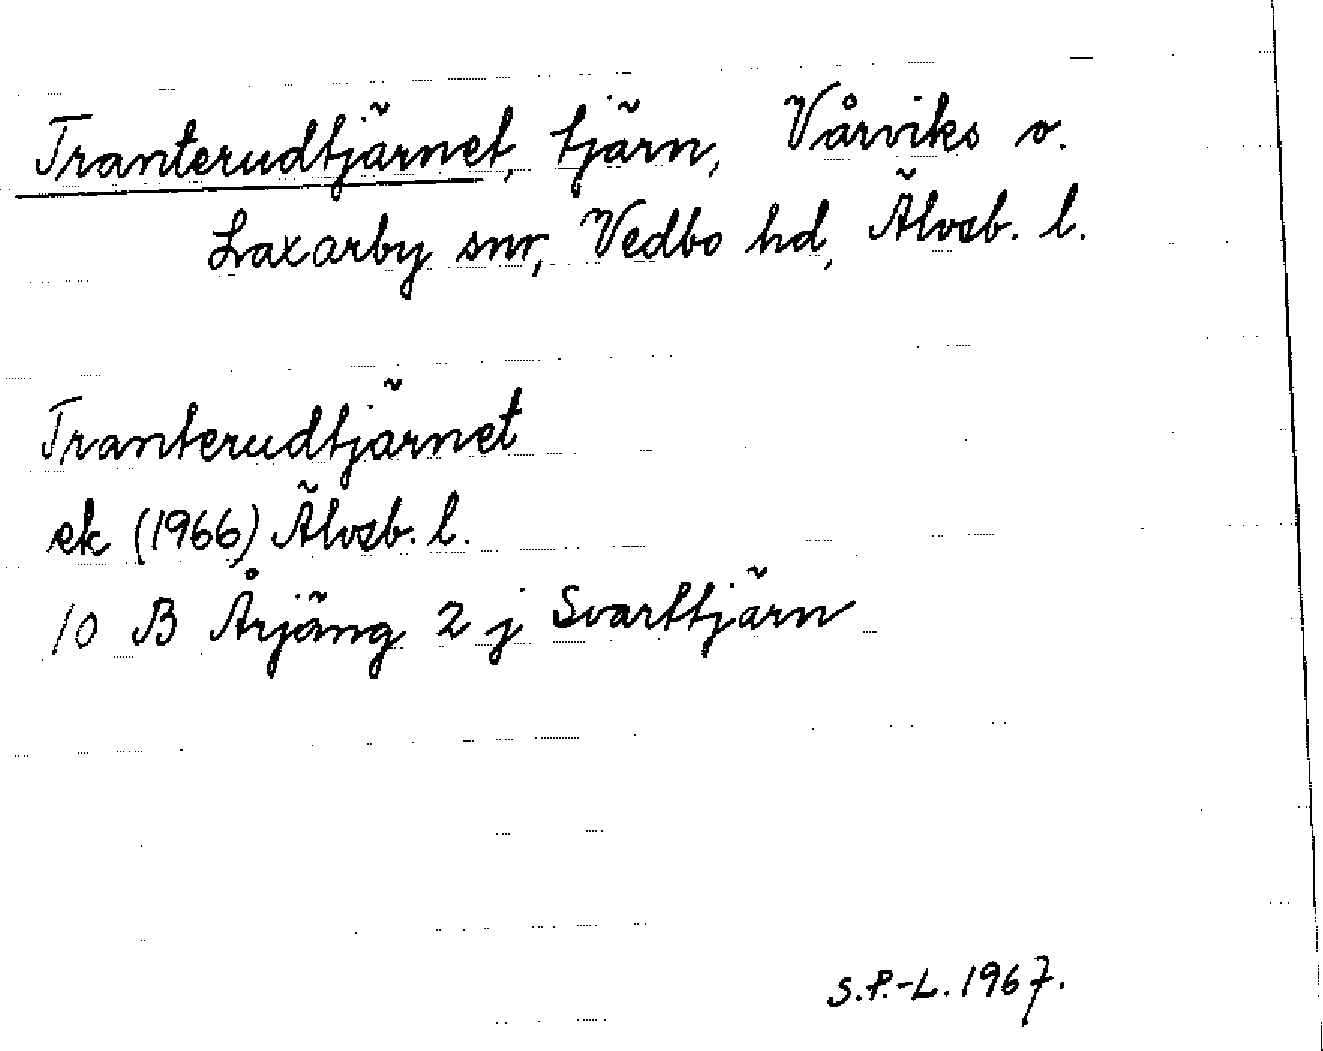 Tranterudtjärnet, tjärn, Vårviks o.
Laxarby snr, Vedbo hd, Älvsb. l.
Tranterudtjärnet
ek (1966) Älvsb. l.
10 B Årjäng 2 j Svarttjärn
S.P.-L. 1967.